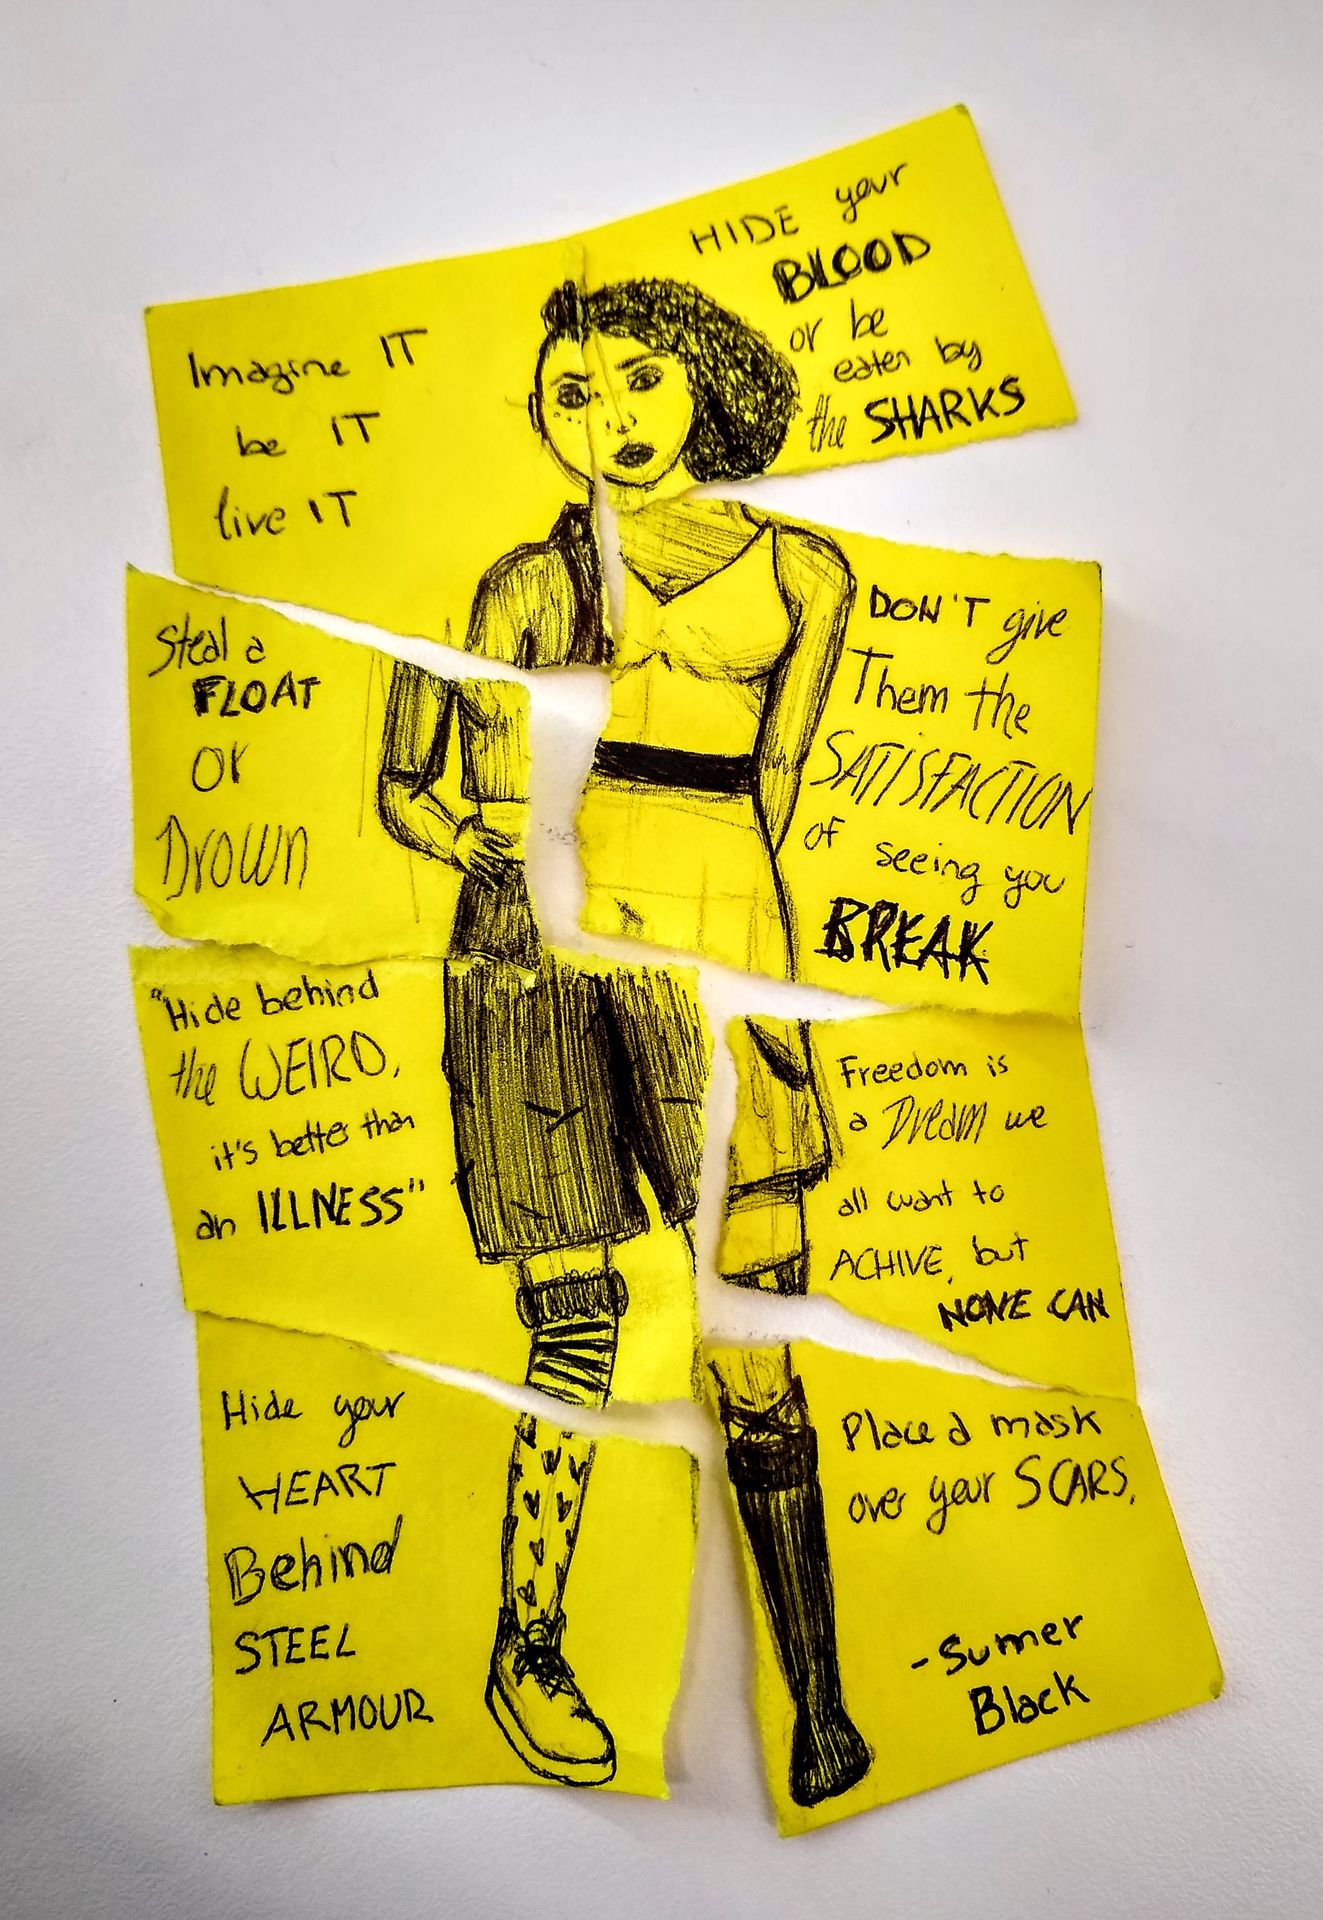 Imagine IT
be IT
live IT
HIDE your
BLOOD
or be
eaten by
the SHARKS
Steal a
FLOAT
or
Drown
DON'T give
Them the
SATISFACTION
of seeing you
BREAK
"Hide behind
the WEIRD,
it's better than
an ILLNESS"
Freedom is
a Dream we
all want to
ACHIVE, but
NONE CAN
Hide your
HEART
Behind
STEEL
ARMOUR
Place a mask
over your SCARS,
-Sumer
Black